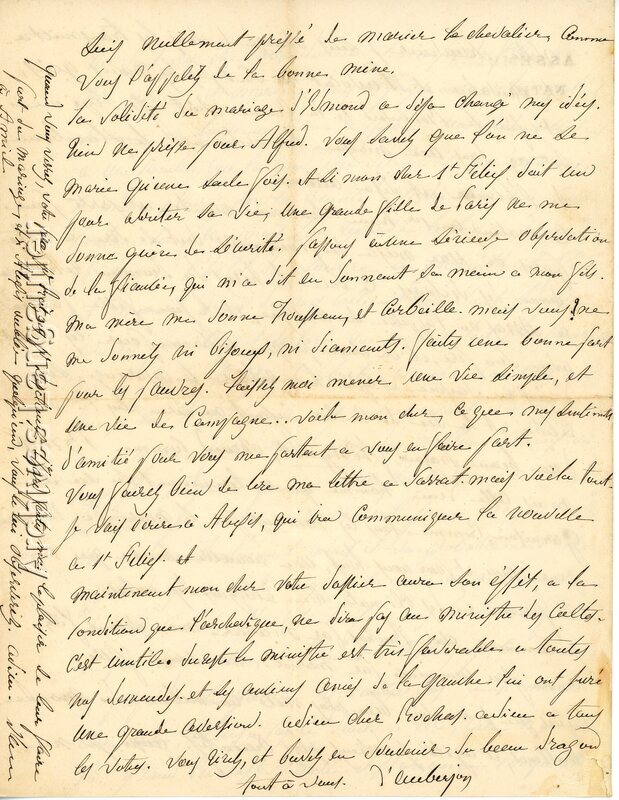 suis nullement pressé de marier le chevalier, comme
vous l'appelez de la bonne mine.
La solidité du mariage d'Osmond a déjà changé mes idées.
Rien ne presse pour Alfred. Vous savez que l'on ne se
marie qu'une seule fois. et si mon sur St Felix doit un
jour abriter sa vie, une grande fille de Paris ne me
donne guère de sécurité. Passons à une sérieuse observation
de la fiancée, qui m'a dit en donnant sa main a mon fils.
ma mère me donne Trousseau, et Corbeille. mais vous ne
me donnez ni bijoux, ni diamants. faites une bonne part
pour les pauvres. Laissez moi mener une vie simple, et
une vie de Campagne.. voila mon cher, ce que mes sentiments
d'amitié pour vous me portent a vous en faire part.
Vous pourez bien de lire ma lettre a Sarrat. mais voila tout.
Je vais écrire à Alexis, qui va communiquer la nouvelle
a St Felix. et
maintenant mon cher votre dossier aura son éffèt, a la
condition que l'archevêque, ne dira pas au ministre des Cultes.
C'est inutile. du reste le ministre est très favorable a toutes
nos demandes. et les anciens amis de la gauche lui ont juré
une grande aversion. adieu cher Rochas. adieu a tous
les votres. Vous rirez, et buvez en souvenir du beau dragon
tout à vous. d'Auberjon
Quand vous verrez, votre le plaisir de leur faire
part du mariage, et si Alexis oublie quelqu'un, vous le lui observerez. adieu.
à Amil